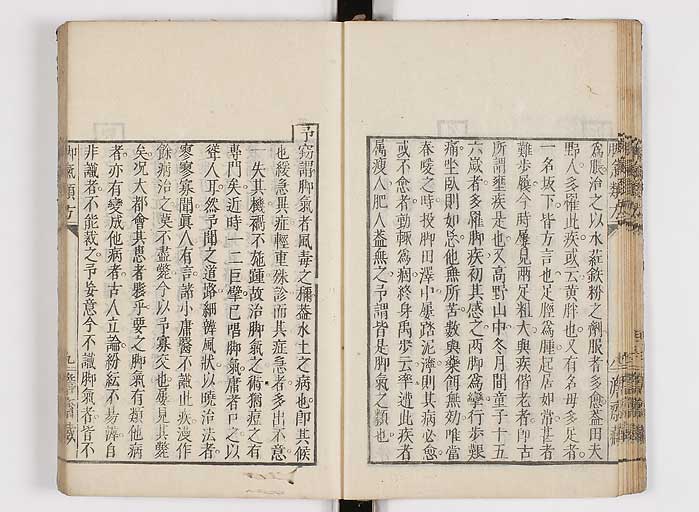 為服治之以水蒞鉄粉之劑服者多愈蓋田夫
野人多罹此疾或云黄胖也又有名毋多足者
一名坂下皆方言也足脛為腫起居如常甚者
難歩履今時屡見兩足粗大與疾偕老者即古
所謂壅疾是也又高野山中冬月間童子十五
六歳者多罹脚疾初其感之兩脚為攣行歩艱
痛坐臥則如忘他無所苦數與藥餌無効唯當
春暖之時投脚田澤中屡踏泥濘則其病必愈
或不愈者動輙為痼終身禹歩云率遭此疾者
属瘦人肥人蓋無之予謂皆是脚氣之類也
予竊謂脚氣者風毒之稱蓋水土之病也即其候
也緩急異症輕重殊診而其症急者多出不意
一失其機禍不旋踵故治脚氣之術猶痘之有
専門矣近時一二巨擘已唱脚氣庸者已之以
聳人耳然予聞之道路細韓風状以曉治法者
寥寥寡聞眞人有言諸小庸醫不識此疾漫作
餘病治之莫不盡斃今以予寡交也屡見其斃
矣况大都會其患者夥乎要之脚氣有類他病
者亦有變成他病者古人立論紛紜不易辨自
非識者不能裁之予妄意今不識脚氣者皆不
脚氣類方
九